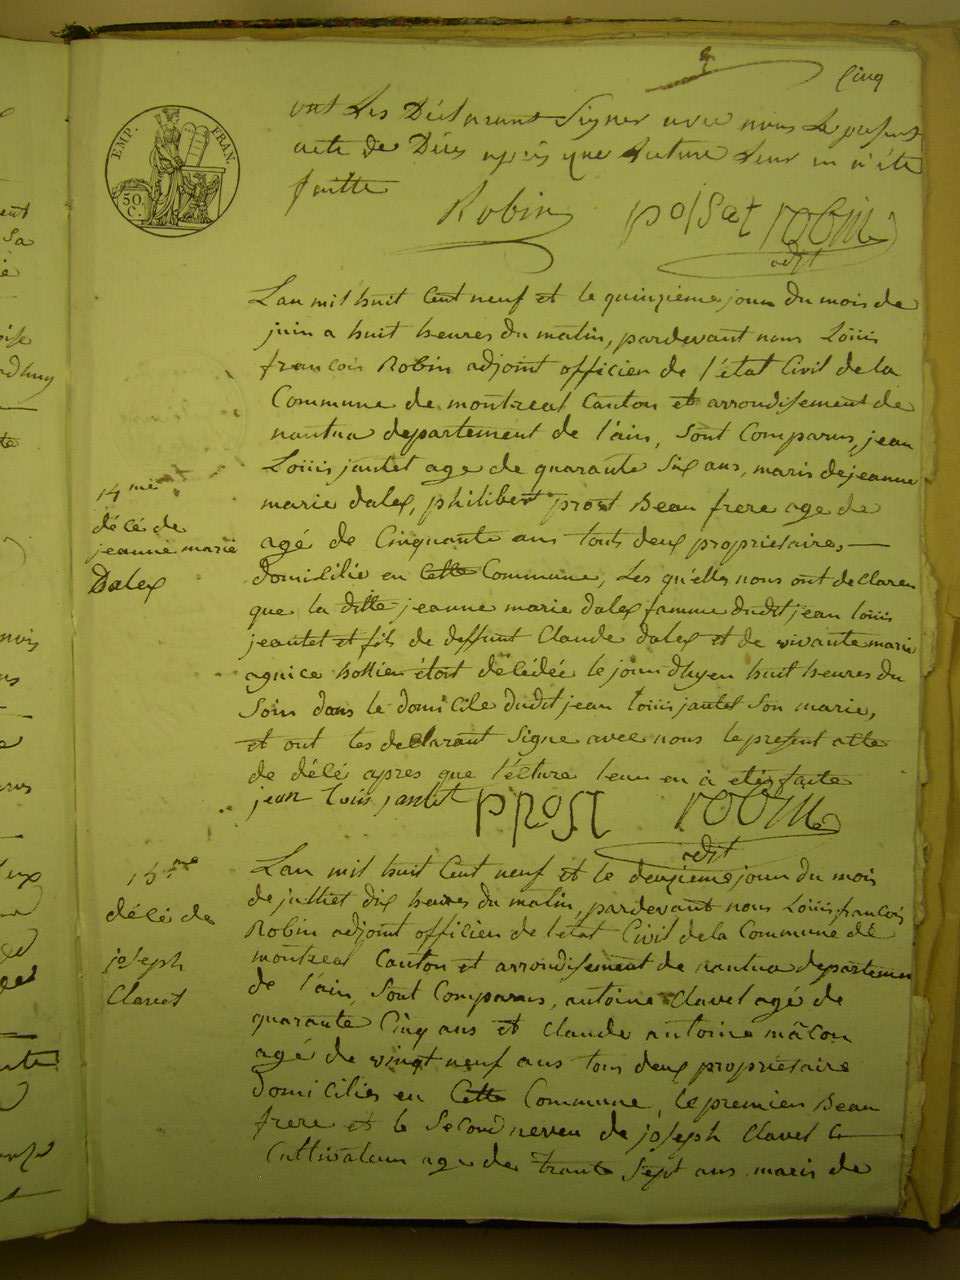 Cinq
EMP. FRAN.
50. C.
ont Les Déclarants Signer avec nous Le présent
acte de Décès après que Lecture Leur en n'été
faitte
Robin polset robin
adjt
Lan mil huit Cent neuf et le quinzieme jour du mois de
juin a huit heures du matin, pardevant nous Loüis
françois Robin adjoint officier de l'état Civil de la
Commune de montreal Canton et arrondisement de
nantua departement de l'ain, sont Comparus, jean
Loüis jantet age de quarante Six ans, maris de jeanne
marie dalex, philibert prost Beau frere age de
agé de Cinquante ans touts deux proprietaires
domicilie en Cette Commune, Les qu'elles nous ont declarer
que la ditte jeanne marie dalex famme dudit jean loüis
jeantet et fils de deffunt Claude dalex et de vivante marie
agnice hottier étoit décédée le jour d'hyer huit heures du
Soir dans le domicile dudit jean loüis jantet Son marie,
et ont les declarant Signe avec nous le present acte
de décé apres que l'écture leur en à etés faite
jean louis jantet prost robin
adjt
14me
décé de
jeanne marie
Dalex
Lan mil huit Cent neuf et le deuxieme jour du mois
de julliet dix heures du matin, pardevant nous Loüis françois
Robin adjoint officier de l'état Civil de la Commune de
montreal Canton et arrondisement de nantua departemen
de l'ain, sont Comparus, antoine Clavel agé de
quarante Cinq ans et Claude antoine mâcon
agé de vingt neuf ans tous deux proprietaire
domicilies en Cette Commune, le premier Beau
frere et le Second neveu de joseph Clavel
Cultivateur age de trante Sept ans maris de
15me
décé de
joseph
Clavet